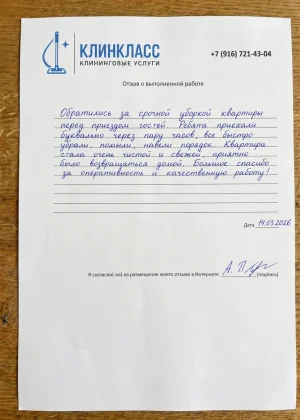 КЛИНКЛАСС
КЛИНИНГОВЫЕ УСЛУГИ
+7 (916) 721-43-04
Отзыв о выполненной работе
Обратились за срочной уборкой квартиры
перед приездом гостей. Ребята приехали
буквально через пару часов, все быстро
убрали, помыли, навели порядок. Квартира
стала очень чистой и свежей, приятно
было возвращаться домой. Большое спасибо
за оперативность и качественную работу!
Дата 14.03.2026
Я согласен(-на) на размещение моего отзыва в Интернете (подпись)